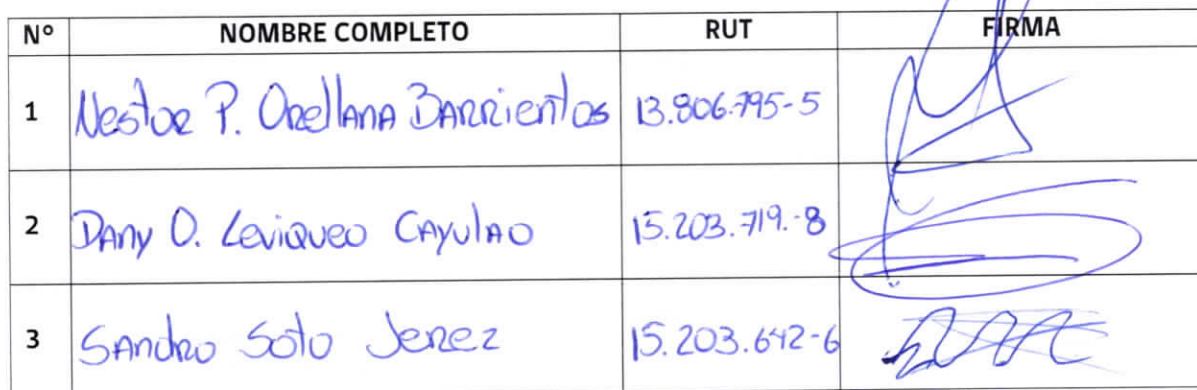 N° NOMBRE COMPLETO RUT FIRMA
1 Nestor P. Orellana Barrientos 13.806.795-5
2 Dany O. Leviqueo Cayulao 15.203.719.-8
3 Sandro Soto Jerez 15.203.642-6